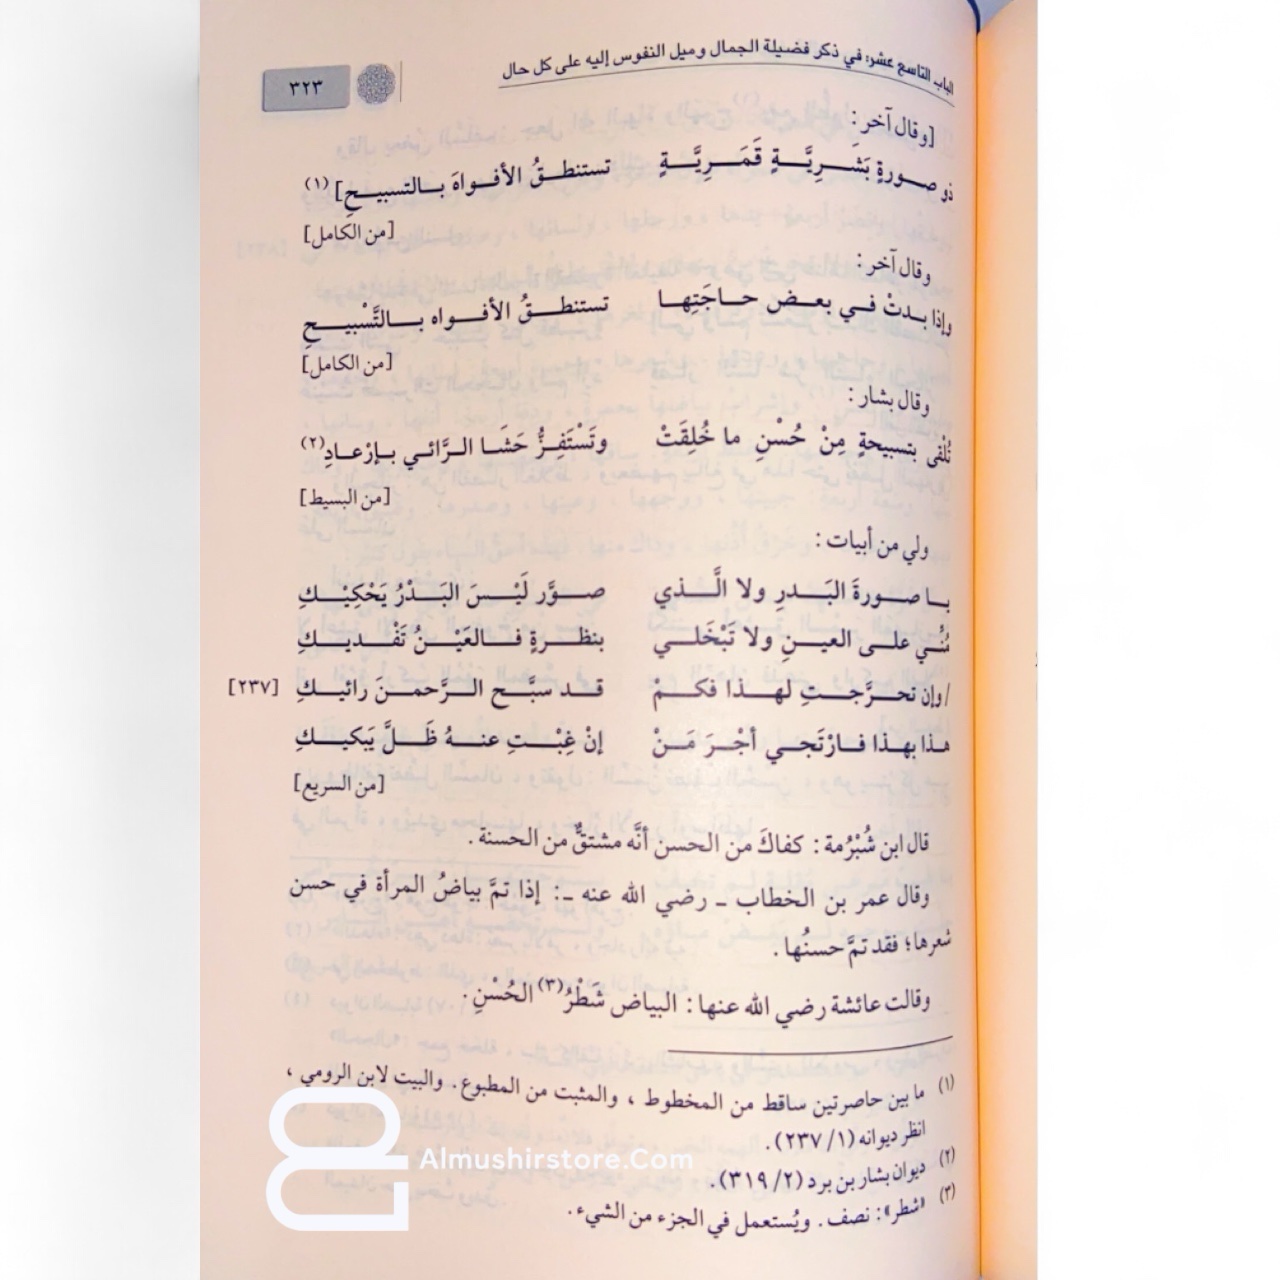 الباب التاسع عشر: في ذكر فضيلة الجمال وميل النفوس إليه على كل حال
٣٢٣
[وقال آخر:
ذو صورةٍ بَشَرِيَّةٍ قَمَرِيَّةٍ تستنطقُ الأفواهَ بالتسبيحِ] (١)
[من الكامل]
وقال آخر:
وإذا بدتْ في بعض حاجَتِها تستنطقُ الأفواه بالتَّسْبيحِ
[من الكامل]
وقال بشار:
تُلْقى بتسبيحةٍ مِنْ حُسْنِ ما خُلِقَتْ وتَسْتَفِزُّ حَشَا الرَّائي بإرْعادِ(٢)
[من البسيط]
ولي من أبيات:
يا صورةَ البَدرِ ولا الَّذي صوَّر لَيْسَ البَدْرُ يَحْكِيْكِ
مُنِّي على العينِ ولا تَبْخَلي بنظرةٍ فالعَيْنُ تَفْديكِ
/ وإن تحرَّجتِ لهذا فكمْ قد سبَّح الرَّحمنَ رائيكِ [٢٣٧]
هذا بهذا فارْتَجي أجْرَ مَنْ إنْ غِبْتِ عنهُ ظَلَّ يَبكيكِ
[من السريع]
قال ابن شُبْرُمة: كفاكَ من الحسن أنَّه مشتقٌّ من الحسنة.
وقال عمر بن الخطاب ـ رضي الله عنه ـ: إذا تمَّ بياضُ المرأة في حسن
شعرها؛ فقد تمَّ حسنُها.
وقالت عائشة رضي الله عنها: البياض شَطْرُ(٣) الحُسْنِ.
(١) ما بين حاصرتين ساقط من المخطوط، والمثبت من المطبوع. والبيت لابن الرومي،
انظر ديوانه (١/ ٢٣٧).
(٢) ديوان بشار بن برد (٢/ ٣١٩).
(٣) «شطر»: نصف. ويُستعمل في الجزء من الشيء.
Almushirstore.Com